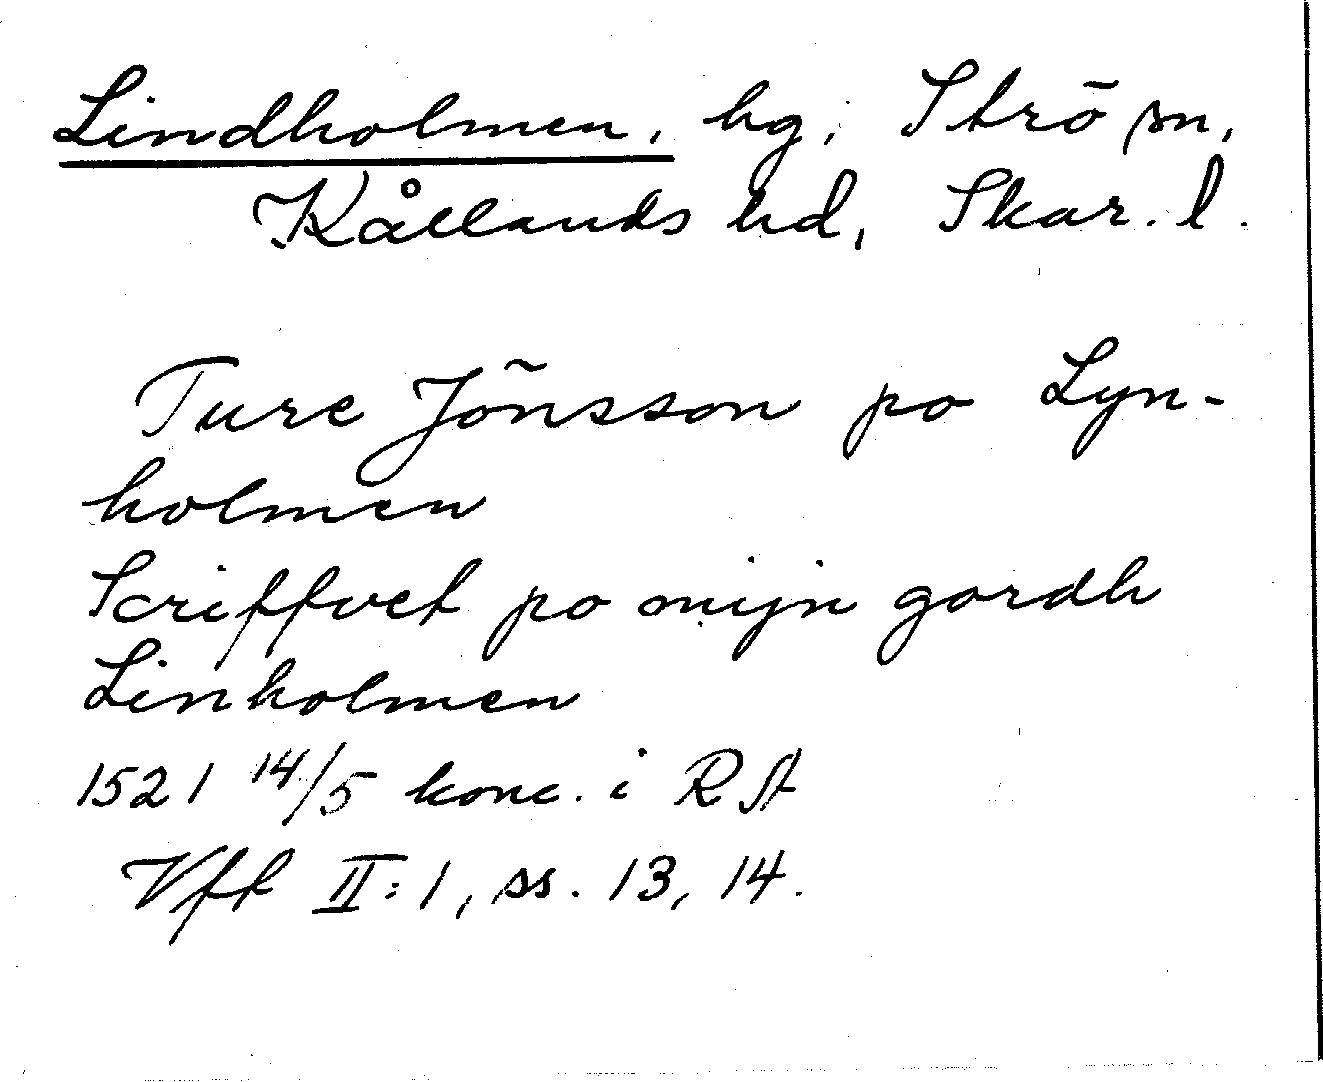 Lindholmen, hg, Strö sn,
Kållands hd, Skar. l.
Ture Jönsson po Lyn-
holmen
Scriffvet po mijn gordh
Linholmen
1521 14/5 konc. i RA
Vff II:1, ss. 13, 14.